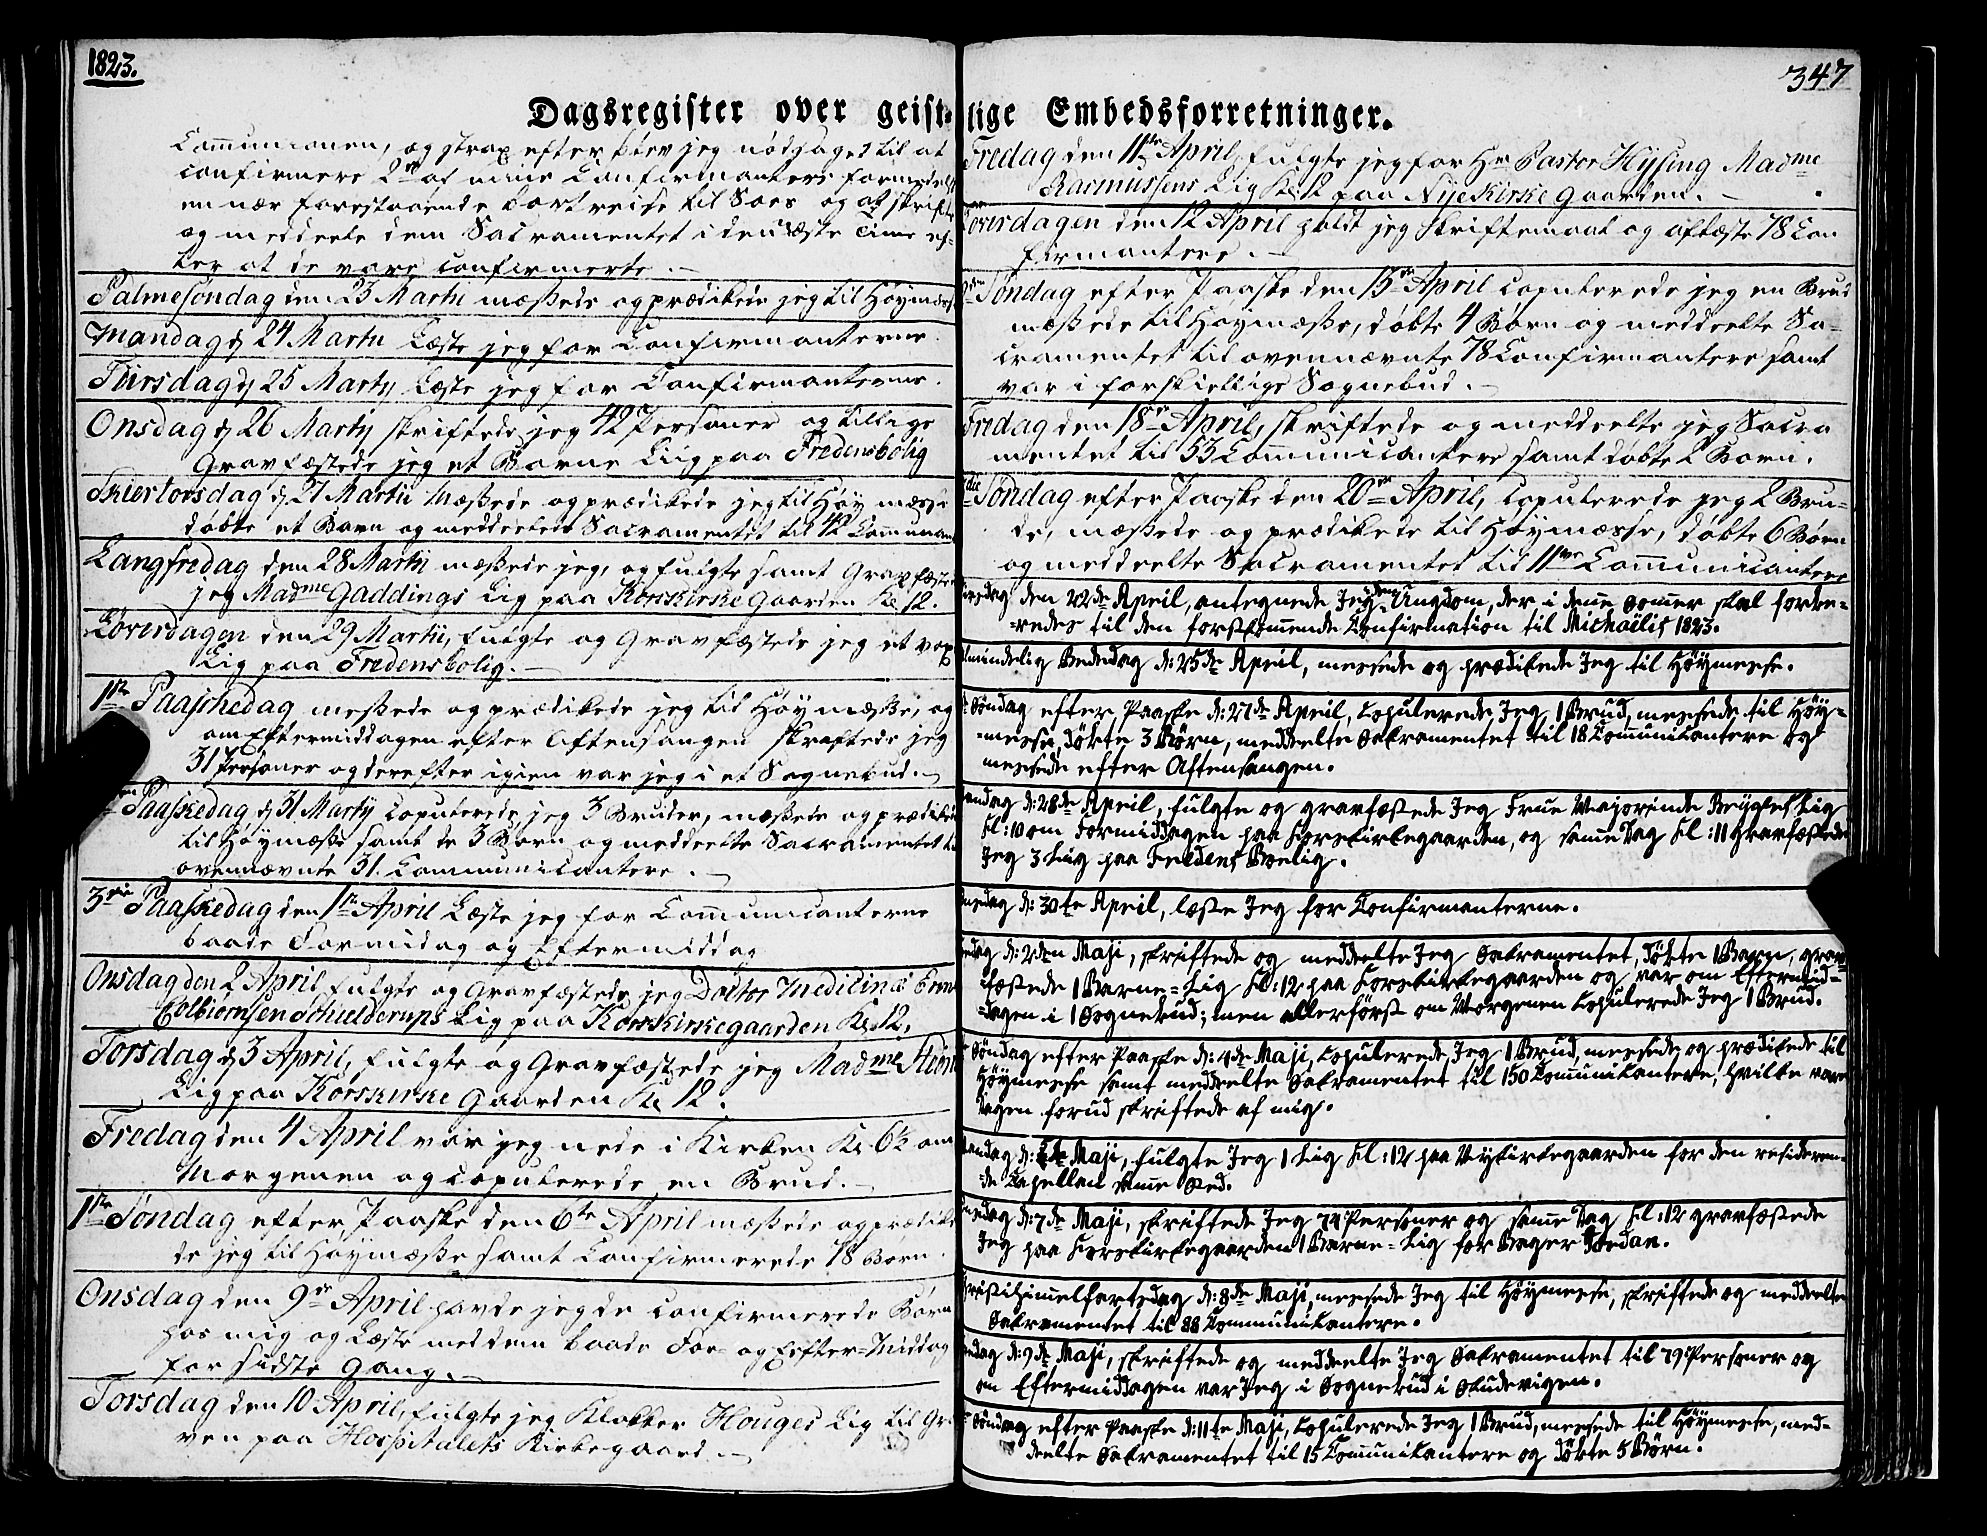 1823.
347
Dagsregister over geistlige Embedsforretninger.
Communionen, og strax efter blev jeg nødsaget til at
confirmere 2 af mine Confirmantere formedelst
en nær forestaaende bortreise til Soes og at skrifte
og meddeele dem Sacramentet i den næste Time ef-
ter at de vare confirmerte.
Palmesøndag den 23 Martii mæssede og prædikede jeg til Høymæsse
Mandag d 24 Martii Læste jeg for Confirmanterne
Tirsdag d 25 Martij Læste jeg for Confirmanterne.
Onsdag d 26 Martij skriftede jeg 42 Personer og tillige
Gravfæstede jeg et Barne Liig paa Fredensbolig
Skiertorsdag d 27 Martii Mæssede og prædikede jeg til Høymæsse
døbte et Barn og meddeelede Sacramentet til 42 Communicant
Langfredag den 28 Martii mæssede jeg, og fulgte samt Gravfæstede
jeg Madme Gaddings Lig paa Korskirke Gaarden Kl 12.
Løverdagen den 29 Martii, fulgte og Gravfæstede jeg et vox
Lig paa Fredensbolig.
1ste Paaskedag messede og prædikede jeg til Høymæsse, og
om Eftermiddagen efter Aftensangen skriftede jeg
31 Personer og derefter igien var jeg i et Sognebud.
Paaskedag d 31 Martij Copulerede jeg 3 Bruder, mæssede og prædikede
til Høymæsse samt de 3 Børn og meddeelte Sacramentet til
ovennævnte 31. Communicantere.
3die Paaskedag den 1ste April Læste jeg for Communicanterne
baade Formidag og Eftermiddag
Onsdag den 2 April fulgte og Gravfæstede jeg Doctor Medicinæ
Colbiørnsen Schielderups Lig paa Korskirkegaarden Kl 12.
Torsdag d 3 April, fulgte og Gravfæstede jeg Madme
Lig paa Korskirke Gaarden Kl 12.
Fredag den 4 April var jeg nede i Kirken Kl 6½ om
Morgenen og Copulerede en Brud.
1ste Søndag efter Paaske den 6te April mæssede og prædike
de jeg til Høymæsse samt Confirmerede 78 Børn
Onsdag den 9de April havde jeg de confirmerede Børn
hos mig og Læste med dem baade For- og Eefter-Middag
for sidste Gang.
Torsdag den 10 April, fulgte jeg Klokker Houges Lig til Gra
ven paa Hospitalets Kirkegaard.
Fredag den 11te April, fulgte jeg for Hr Pastor Hysing Madme
Rasmussens Lig Kl 12 paa Nye Kirke Gaarden.
Løverdagen den 12 April holdt jeg Skriftemaal og afløste 78 Con
firmantere.
Søndag efter Paaske den 13de April Copulerede jeg en Brud
mæssede til Høymæsse, døbte 4 Børn og meddeelte Sa-
cramentet til ovennævnte 78 Confirmantere samt
var i forskiellige Sognebud.
Fredag den 18de April, skriftede og meddeelte jeg Sacra
mentet til 53 Communicantere samt døbte 2 Børn.
Søndag efter Paaske den 20de April, Copulerede jeg 2 Bru-
de, mæssede og prædikede til Høymæsse, døbte 6 Børn
og meddeelte Sacramentet til 11 Communicantere
Tirsdag den 22de April, antegnede Jeg den Ungdom, der i denne Sommer skal forbe-
=redes til den førstkommende Confirmation til Michaëlis 1823.
Almindelig Bededag d: 25de April, messede og prædikede Jeg til Høymesse.
Søndag efter Paaske d: 27de April, Copulerede Jeg 1 Brud, messede til Høy=
=messe, døbte 3 Børn, meddeelte Sakramentet til 18 Communikantere og
messede efter Aftensangen.
Mandag d: 28de April, fulgte og gravfæstede Jeg Frue Majorinde Lig
Kl: 10 om Formiddagen paa Korskirkegaarden, og samme Dag Kl: 11 gravfæstede
Jeg 3 Lig paa Fredens Boelig.
Onsdag d: 30te April, læste Jeg for Confirmanterne.
Fredag d: 2den Maji, skriftede og meddeelte Jeg Sakramentet, døbte 1 Barn, grav=
fæstede 1 Barne=Lig Kl: 12 paa Korskirkegaarden og var om Eftermid=
=dagen i 1 Sognebud; men allerførst om Morgenen Copulerede Jeg 1 Brud.
Søndag efter Paaske d: 4de Maji, Copulerede Jeg 1 Brud, messede og prædikede til
Høymesse samt meddeelte Sakramentet til 150 Communikantere, hvilke vare
Dagen forud skriftede af mig.
Mandag d: 5te Maji, fulgte Jeg 1 Lig Kl: 12 paa Nykirkegaarden for den resideren-
=de Capellan samme Sted.
Onsdag d: 7de Maji, skriftede Jeg 74 Personer og samme Dag Kl: 12 gravfæstede
Jeg paa Korskirkegaarden 1 Barne=Lig for Bager Jordan.
Christi himmelfartsdag d: 8de Maji, messede Jeg til Høymesse, skriftede og meddeelte
Sakramentet til 88 Communikantere.
Fredag d: 9de Maji, skriftede og meddeelte Jeg Sakramentet til 79 Personer og
om Eftermiddagen var Jeg i Sognebud i Studevigen.
Søndag efter Paaske d: 11te Maji, Copulerede Jeg 1 Brud, messede til Høymesse, med=
deelte Sakramentet til 15 Communikantere og døbte 5 Børn.